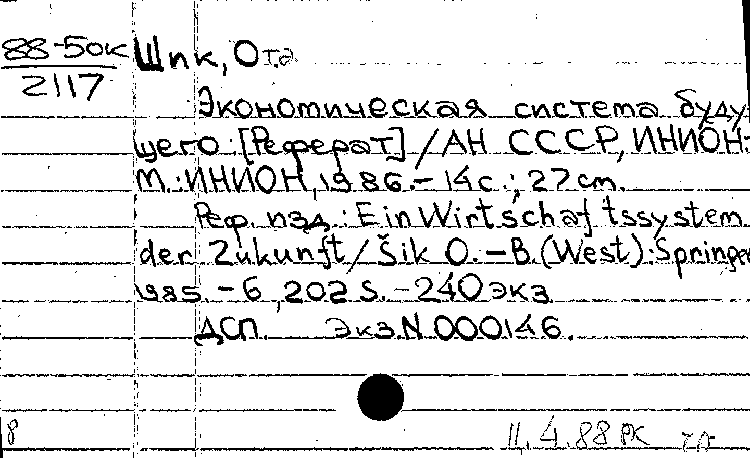 88-50к Шик, Ота
2117
Экономическая система буду
щего: [Реферат] / АН СССР, ИНИОН:
М.: ИНИОН, 1986.- 14 с.; 27 cm.
Реф. изд.: Ein Wirtschaftssystem
der Zukunft / Šik O. – B. (West): Springer
1985. - 6, 202 S. - 240 экз
ДСП. Экз. N 000146.
8 11.4.88 РК